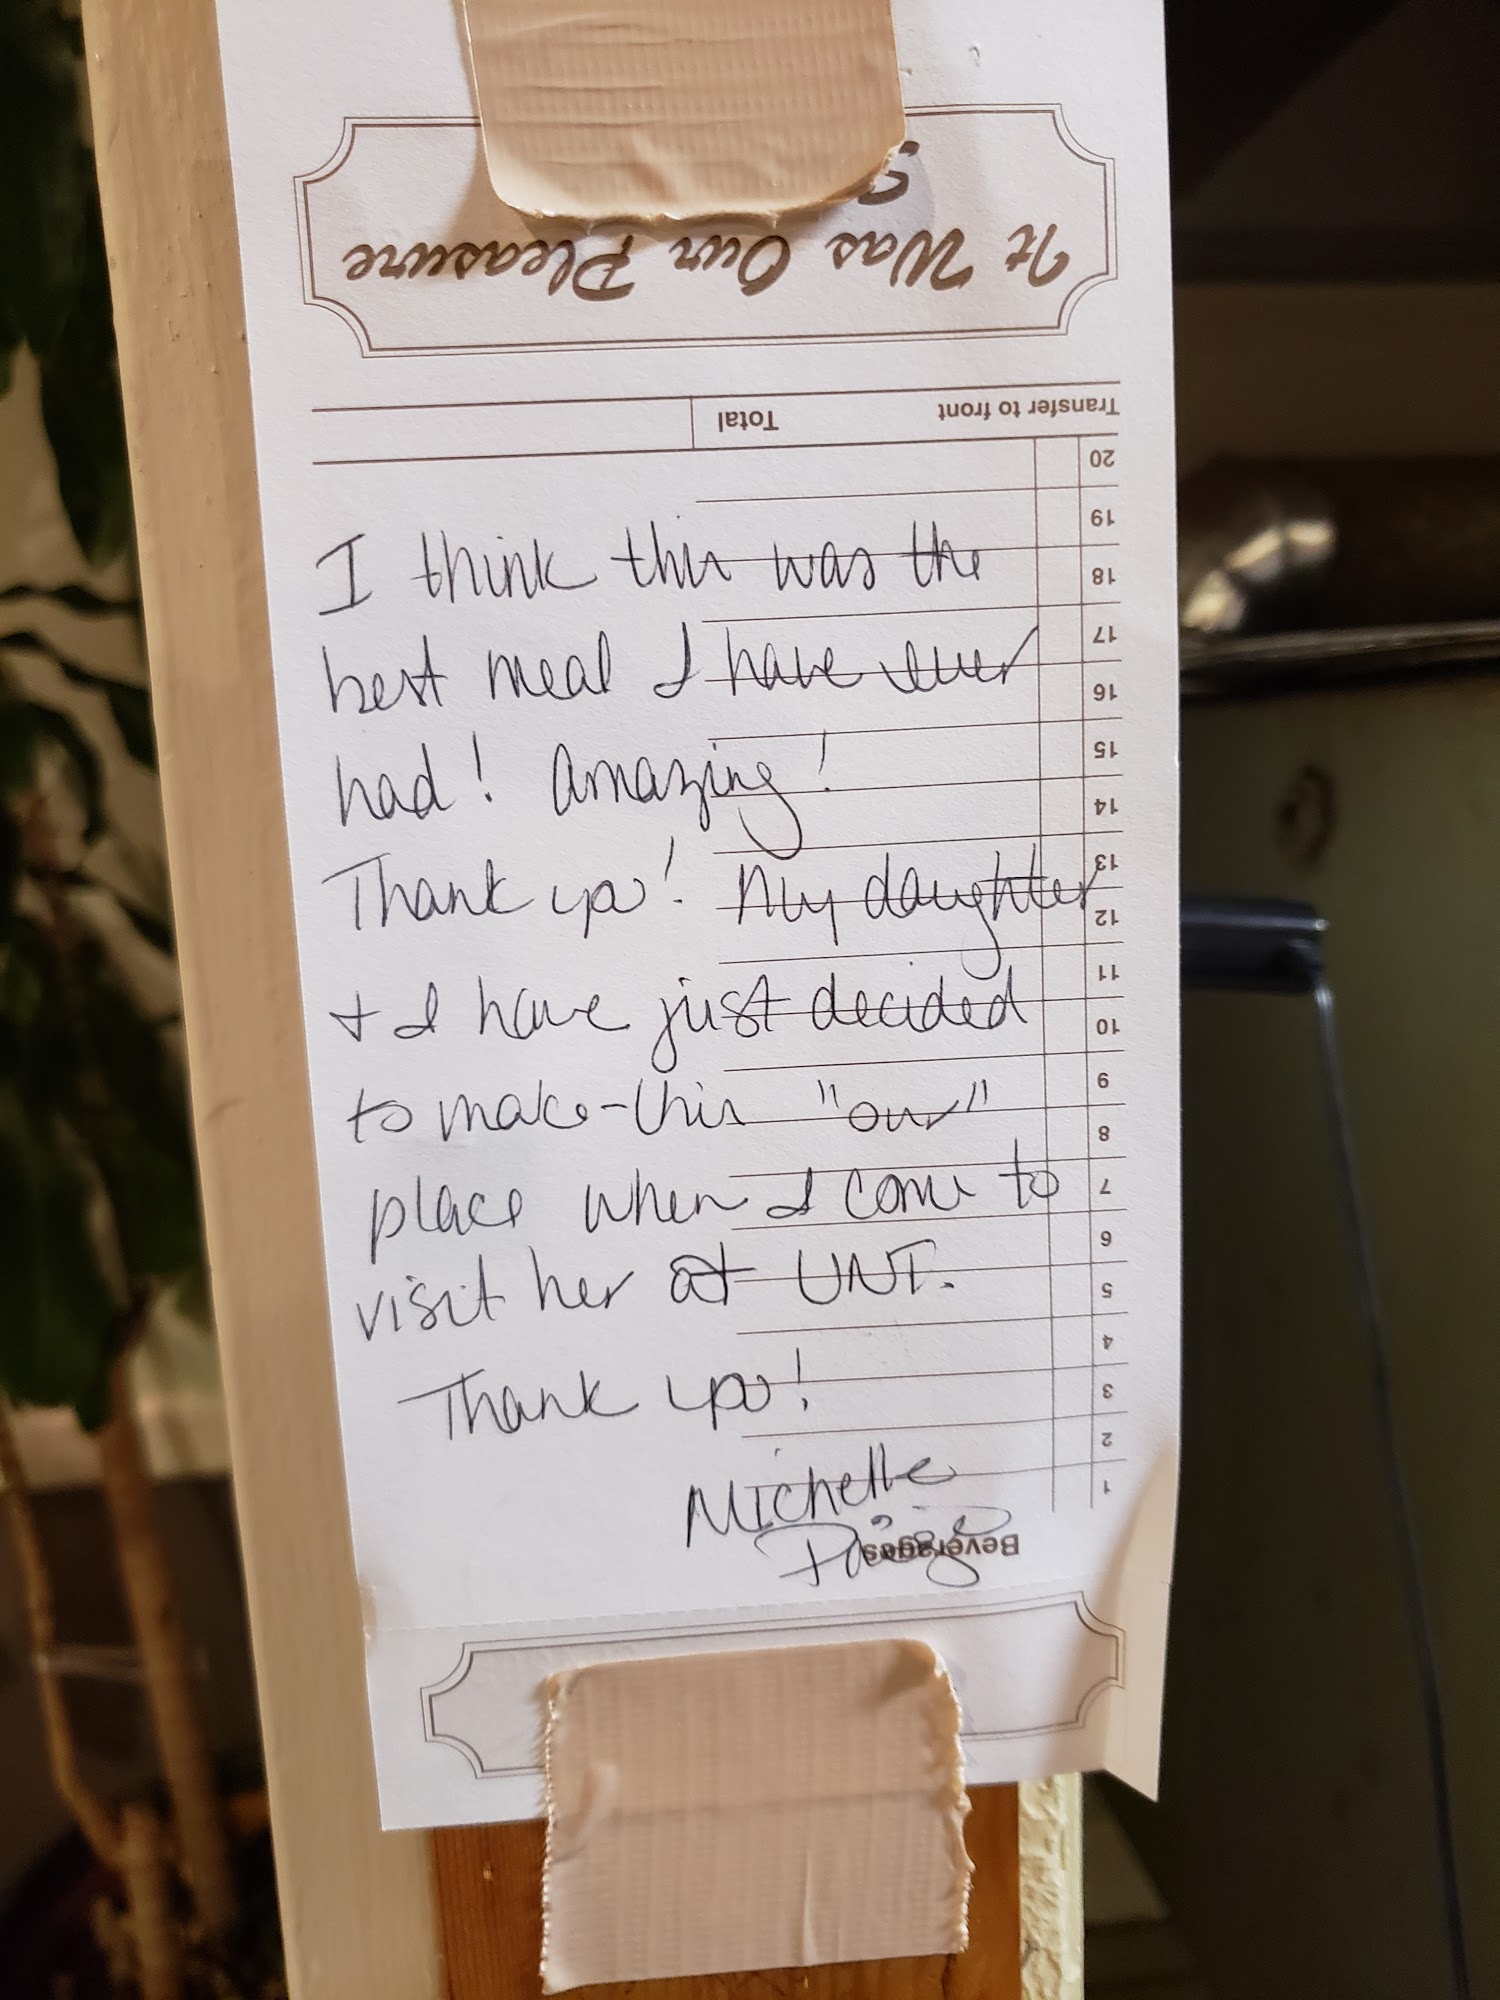 It Was Our Pleasure
Transfer to front Total
20
19
18
17
16
15
14
13
12
11
10
9
8
7
6
5
4
3
2
1
Beverages
I think this was the
best meal I have ever
had! Amazing!
Thank you! My daughter
+ I have just decided
to make this "our"
place when I come to
visit her at UNT.
Thank you!
Michelle
Paige